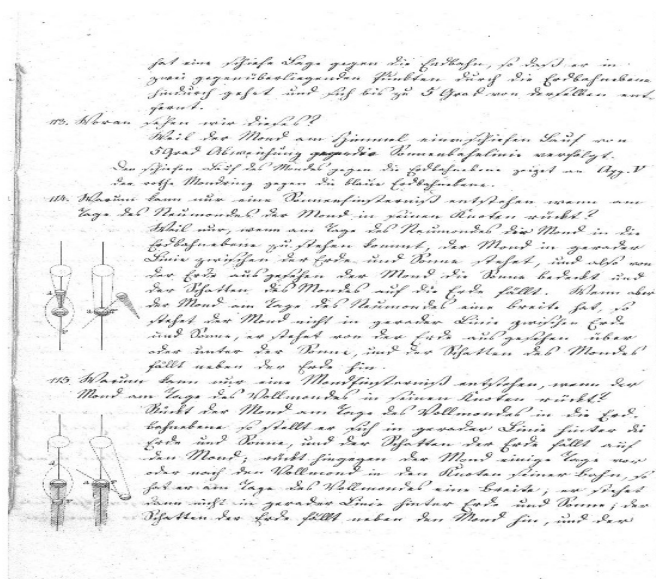 hat eine schiefe Lage gegen die Erdbahn, so daß er in
zwei gegenüberliegenden Punkten durch die Erdbahnebene
hindurch gehet und sich bis zu 5 Grad von derselben ent-
fernt.
113. Woran sehen wir dieses?
Weil der Mond am Himmel einen schiefen Lauf von
5 Grad Abweichung gegen die Sonnenbahnlinie verfolgt.
Den schiefen Lauf des Mondes gegen die Erdbahnebene zeiget an App. V
der rothe Mondring gegen die blaue Erdbahnebene.
114. Warum kann nur eine Sonnenfinsterniß entstehen wenn am
Tage des Neumondes der Mond in seinen Knoten rückt?
Weil nur, wenn am Tage des Neumondes der Mond in die
Erdbahnebene zu stehen kommt, der Mond in gerader
Linie zwischen der Erde und Sonne stehet, und also von
der Erde aus gesehen der Mond die Sonne bedeckt und
der Schatten des Mondes auf die Erde fällt. Wenn aber
der Mond am Tage des Neumondes eine Breite hat, so
stehet der Mond nicht in gerader Linie zwischen Erde
und Sonne, er stehet von der Erde aus gesehen über
oder unter der Sonne, und der Schatten des Mondes
fällt neben der Erde hin.
115. Warum kann nur eine Mondfinsterniß entstehen, wenn der
Mond am Tage des Vollmondes in seinen Knoten rückt?
Rückt der Mond am Tage des Vollmondes in die Erd-
bahnebene so stellt er sich in gerader Linie hinter die
Erde und Sonne, und der Schatten der Erde fällt auf
den Mond; rückt hingegen der Mond einige Tage vor
oder nach dem Vollmond in den Knoten seiner Bahn, so
hat er am Tage des Vollmondes eine Breite; er stehet
dann nicht in gerader Linie hinter Erde und Sonne; der
Schatten der Erde fällt neben den Mond hin, und der